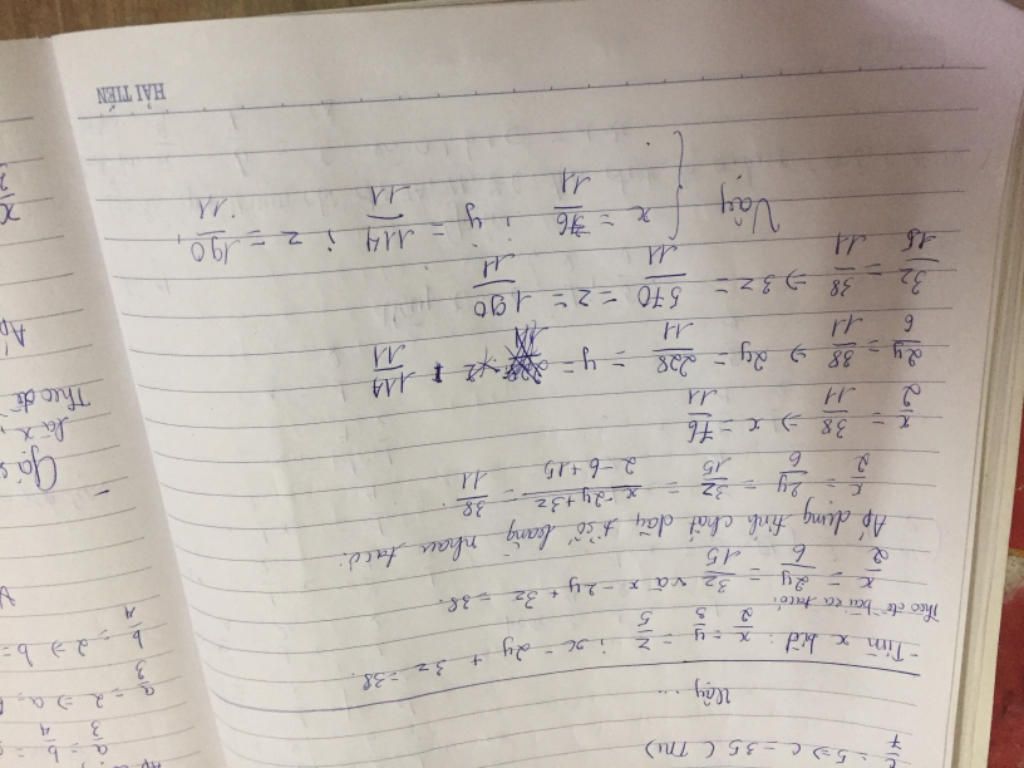 HẢI TIẾN
c/7 = 5 ⇒ c = 35 (TM)
Vậy ...
- Tìm x biết: x/2 = y/3 = z/5 ; x - 2y + 3z = 38.
Theo đề bài ra ta có:
x/2 = 2y/6 = 3z/15 và x - 2y + 3z = 38.
Áp dụng tính chất dãy tỉ số bằng nhau ta có:
x/2 = 2y/6 = 3z/15 = x-2y+3z/2-6+15 = 38/11.
x/2 = 38/11 ⇒ x = 76/11
2y/6 = 38/11 ⇒ 2y = 228/11 = y = 114/11
3z/15 = 38/11 ⇒ 3z = 570/11 = z = 190/11
Vậy { x = 76/11 ; y = 114/11 ; z = 190/11.
a/3 = b/4 =
a/3 = 2 ⇒ a =
b/4 = 2 ⇒ b =
là x,
Theo đề
Áp
x/3